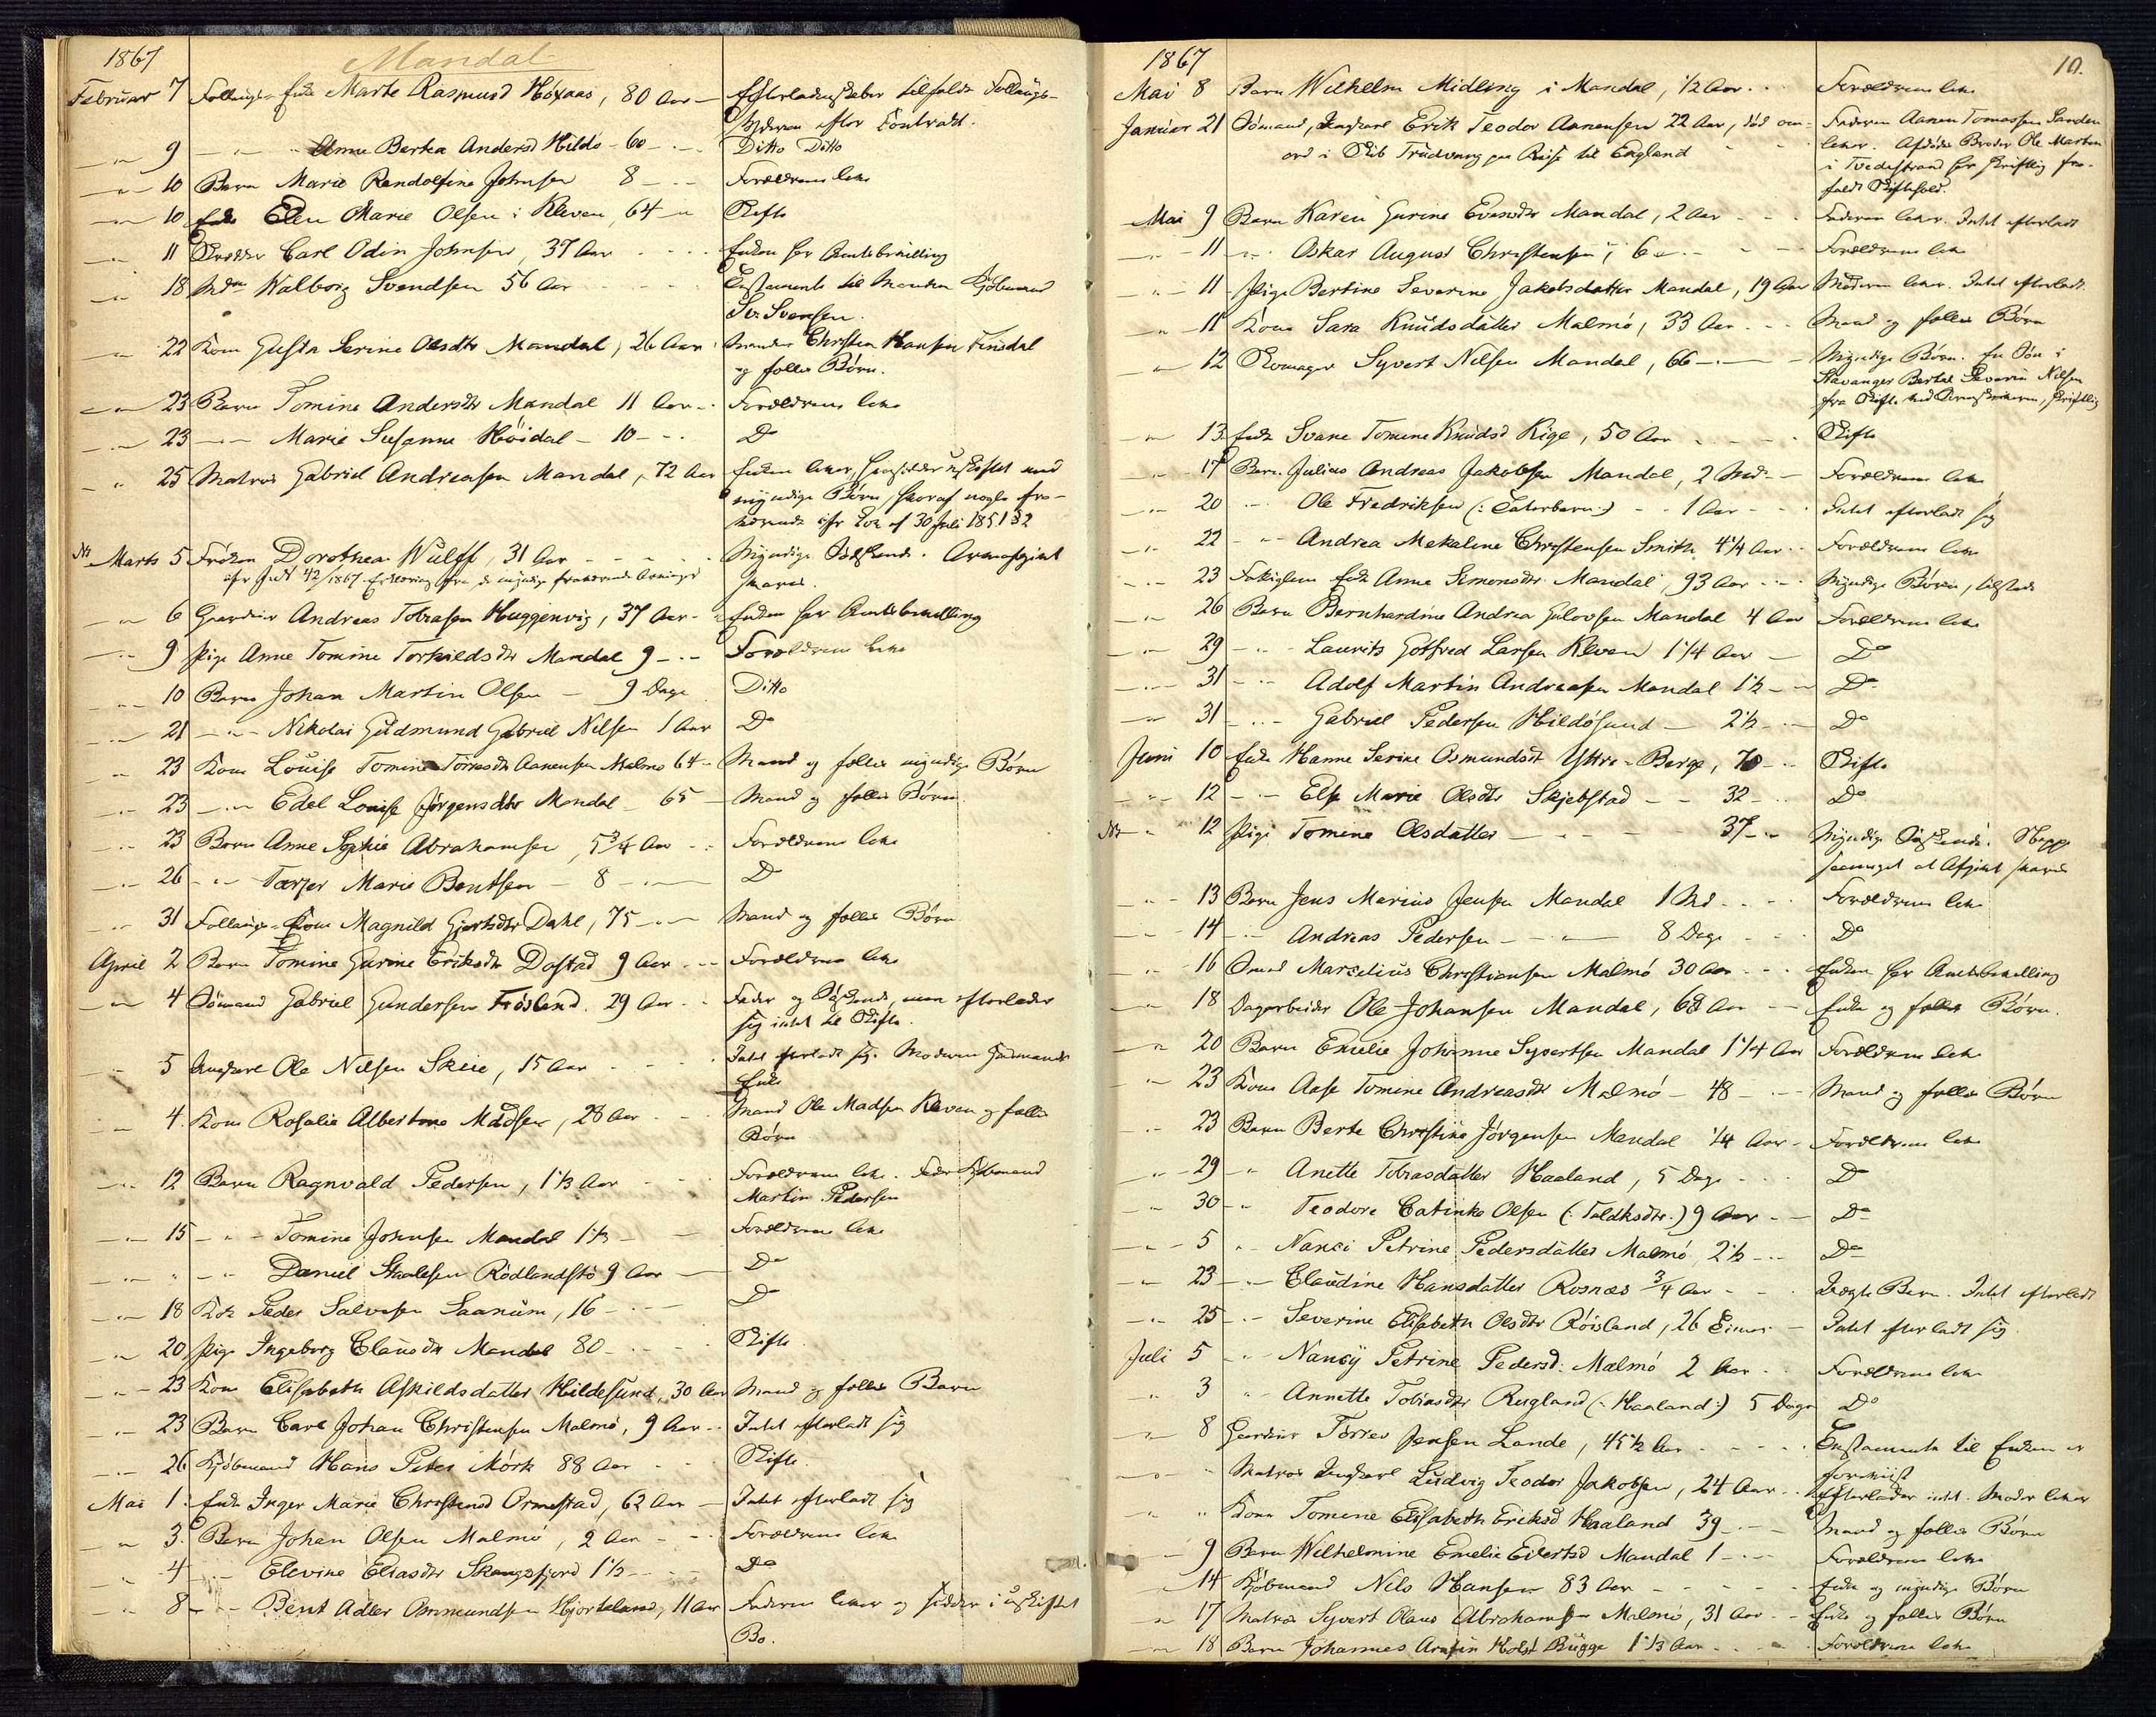 1867
Mandal
Februar 7 Follaugs Enke Marte Rasmusd Høxaas, 80 Aar - Efterladenskaber tilfaldt Follaugs-
yderen efter Contract.
" 9 - " - Anne Berta Andersd Hildø - 60 - Ditto Ditto
" 10 Barn Marie Randolfine Johnsen 8 - Forældrene leve
" 10 Enke Elen Marie Olsen i Kleven, 64 - " Skifte
11 Skrædder Carl Odin Johnsen, 37 Aar Enken har Amtsbevilling
18 Mdm Walborg Svendsen 56 Aar Testamente til Manden Kjøbmand
Sv. Svensen.
" 22 Kone Gusta Serine Olsdtr Mandal, 26 Aar Manden Christen Hansen Finsdal
og fælles Børn.
" 23 Barn Tomine Andersdtr Mandal 11 Aar Forældrene leve
" 23 - " - Marie Susanne Høidal - 10 - Do
" 25 Matros Gabriel Andreasen Mandal, 72 Aar Enken lever, hensidder uskiftet med
myndige Børn, hvoraf nogle fra-
værende cfr Lov af 30 Juli 1851 § 2
Nt Marts 5 Frøken Dorothea Wulff, 31 Aar Myndige Sødskende. Arveafgift
cfr J. No 42/1867 Erklæring fra de myndige fraværende Arvinger svares.
" 6 Gaardmr Andreas Tobiasen Huggenvig, 37 Aar Enken har Amtsbevilling
" 9 Pige Anne Tomine Torkildsdtr Mandal 9 - Forældrene leve
" 10 Barn Johan Martin Olsen - 9 Dage Ditto
" 21 - " - Nikolai Gudmund Gabriel Nilsen 1 Aar Do
" 23 Kone Louise Tomine Tørresdtr Aanensen Malmø 64 - Mand og fælles myndige Børn
" 23 - " - Edel Louise Jørgensdtr Mandal 65 - Mand og fælles Børn
" 23 Barn Anne Sophie Abrahamsen, 5 3/4 Aar Forældrene leve
" 26 - " - Tarjer Marie Bentsen - 8 - " - D
" 31 Follaugs-Kone Magnild Gjertsdtr Dahl, 75 - " - Mand og fælles Børn
April 2 Barn Tomine Gurine Eriksdtr Dastad 9 Aar Forældrene leve
" 4 Sømand Gabriel Gundersen Frøsland. 29 Aar Fader og Sødskende, men efterlader
sig intet til Skifte.
5 Ungkarl Ole Nilsen Skeie, 15 Aar Intet efterladt sig. Moderen Gaardmands
Enke
4. Kone Rosalie Albertine Madsen, 28 Aar Mand Ole Madsen Kleven og fælles
Børn
" 12 Barn Ragnvald Pedersen, 1 1/3 Aar Forældrene leve. Fader Kjøbmand
Martin Pedersen
" 15 - " - Tomine Johnsen Mandal 1 1/2 - Forældrene leve
" " - " - Daniel Staalesen Rødlandstø 9 Aar Do
" 18 Peder Salvesen Saanum, 16 - D
" 20 Pige Ingeborg Clausdtr Mandal 80 - Skifte
" 23 Kone Elisabeth Askildsdatter Hildesund, 30 Aar Mand og fælles Barn
" 23 Barn Carl Johan Christensen Malmø, 9 Aar Intet efterladt sig
" 26 Kjøbmand Hans Peter Mørk 88 Aar Skifte.
Mai 1. Enke Inger Marie Christensd Ormestad, 62 Aar - Intet efterladt sig
" 3. Barn Johan Olsen Malmø, 2 Aar Forældrene leve
4 - " - Elevine Eliasdtr Skangsfjord 1 1/2 - Do
" 8 - " - Bent Adler Ommundsen Hjorteland, 11 Aar Faderen lever og sidder i uskiftet
Bo.
1867
10.
Mai 8 Barn Wilhelm Midling i Mandal, 1/2 Aar Forældrene leve
Januar 21 Sømand, Ungkarl Erik Teodor Aanensen 22 Aar, død om- Faderen Aanen Tomassen Sanden
ord i Skib Trudvang paa Reise til England lever. Afdødes Broder Ole Martin
i Tvedestrand har skriftlig fra-
faldt Skiftehold.
Mai 9 Barn Karen Gurine Evensdtr Mandal, 2 Aar Faderen lever. Intet efterladt
" 11 - " - Oskar August Christensen, 6 " - Forældrene leve
" 11 - Pige Bertine Severine Jakobsdatter Mandal, 19 Aar Moderen lever. Intet efterladt.
" 11 Kone Sara Knudsdatter Malmø, 33 Aar Mand og fælles Børn
" 12 Skomager Syvert Nilsen Mandal, 66 - Myndige Børn. En Søn i
Stavanger Bertel Severin Nilsen
fra Skifte ved skriftlig
" 13 Enke Svane Tomine Knudsd Kige, 50 Aar Skifte
" 17 Barn Julius Andreas Jakobsen Mandal, 2 Md. Forældrene leve
" 20 - " Ole Fredriksen (: Taterbarn :) - 1 Aar Intet efterladt sig
" 22 - " - Andrea Mekaline Christensen Smith, 4 1/4 Aar Forældrene leve
" 23 Fattiglem Enke Anne Simonsdtr Mandal, 93 Aar Myndige Børn, tilstede
" 26 Barn Bernhardine Andrea Gulovsen Mandal 4 Aar Forældrene leve
" 29 - " - Laurits Gotfred Larsen Kleven 1 1/4 Aar Do
" 31 - " Adolf Martin Andreasen Mandal 1 1/2 - " Do
" 31 - " - Gabriel Pedersen Hildøsund - 2 1/2 - Do
Juni 10 Enke Hanne Serine Osmundsdt Yttre-Berge, 70 - Skifte
" 12 - " - Else Marie Olsdtr Skjebstad - 32 - Do
Nt " 12 Pige Tomine Olsdatter - 37 - " Myndige Sødskende.
at Afgift svares
" 13 Barn Jens Marius Jensen Mandal 1 Md. Forældrene leve
" 14 - " Andreas Pedersen - " - 8 Dage Do
" 16 Smed Marselius Christiansen Malmø 30 Aar Enken har Amtsbevilling
" 18 Dagarbeider Ole Johansen Mandal, 68 Aar Enke og fælles Børn.
" 20 Barn Emelie Johanne Syvertsen Mandal 1 1/4 Aar Forældrene leve
" 23 Kone Aase Tomine Andreasdtr Malmø - 48 - Mand og fælles Børn
" 23 Barn Berte Christine Jørgensen Mandal 1/4 Aar - Forældrene leve
" 29 - " Anette Tobiasdatter Haaland, 5 Dage D
" 30 - " Teodore Catinka Olsen (: Foldksdtr :) 9 Aar Do
" 5 " Nanci Petrine Pedersdatter Malmø 2 1/2 - Do
" 23 - " - Claudine Hansdatter Rosnæs 3/4 Aar Uægte Barn. Intet efterladt
" 25 - " - Severine Elisabeth Olsdtr Røisland, 26 Timer - Intet efterladt sig
Juli 5 " Nancÿ Petrine Pedersd: Malmø 2 Aar Forældrene leve
" 3 " Annette Tobiasdtr Rugland (: Haaland :) 5 Dage Do
" 8 Gaardmr Tørres Jensen Lande, 45 1/2 Aar Testamente til Enken er
foreviist
" " Matros Ungkarl Ludvig Teodor Jakobsen, 24 Aar Efterlader intet. Moder lever
" " Kone Tomine Elisabeth Eriksd Haaland 39 - Mand og fælles Børn
9 Barn Wilhelmine Emelie Eilertsd Mandal 1 - Forældrene leve
" 14 Kjøbmand Nils Hansen 83 Aar Enke og myndige Børn
" 17 Matros Syvert Olaus Abrahamsen Malmø, 31 Aar Enke og fælles Børn
" 18 Barn Johannes Arntin Holst Bugge 1 1/3 Aar Forældrene leve